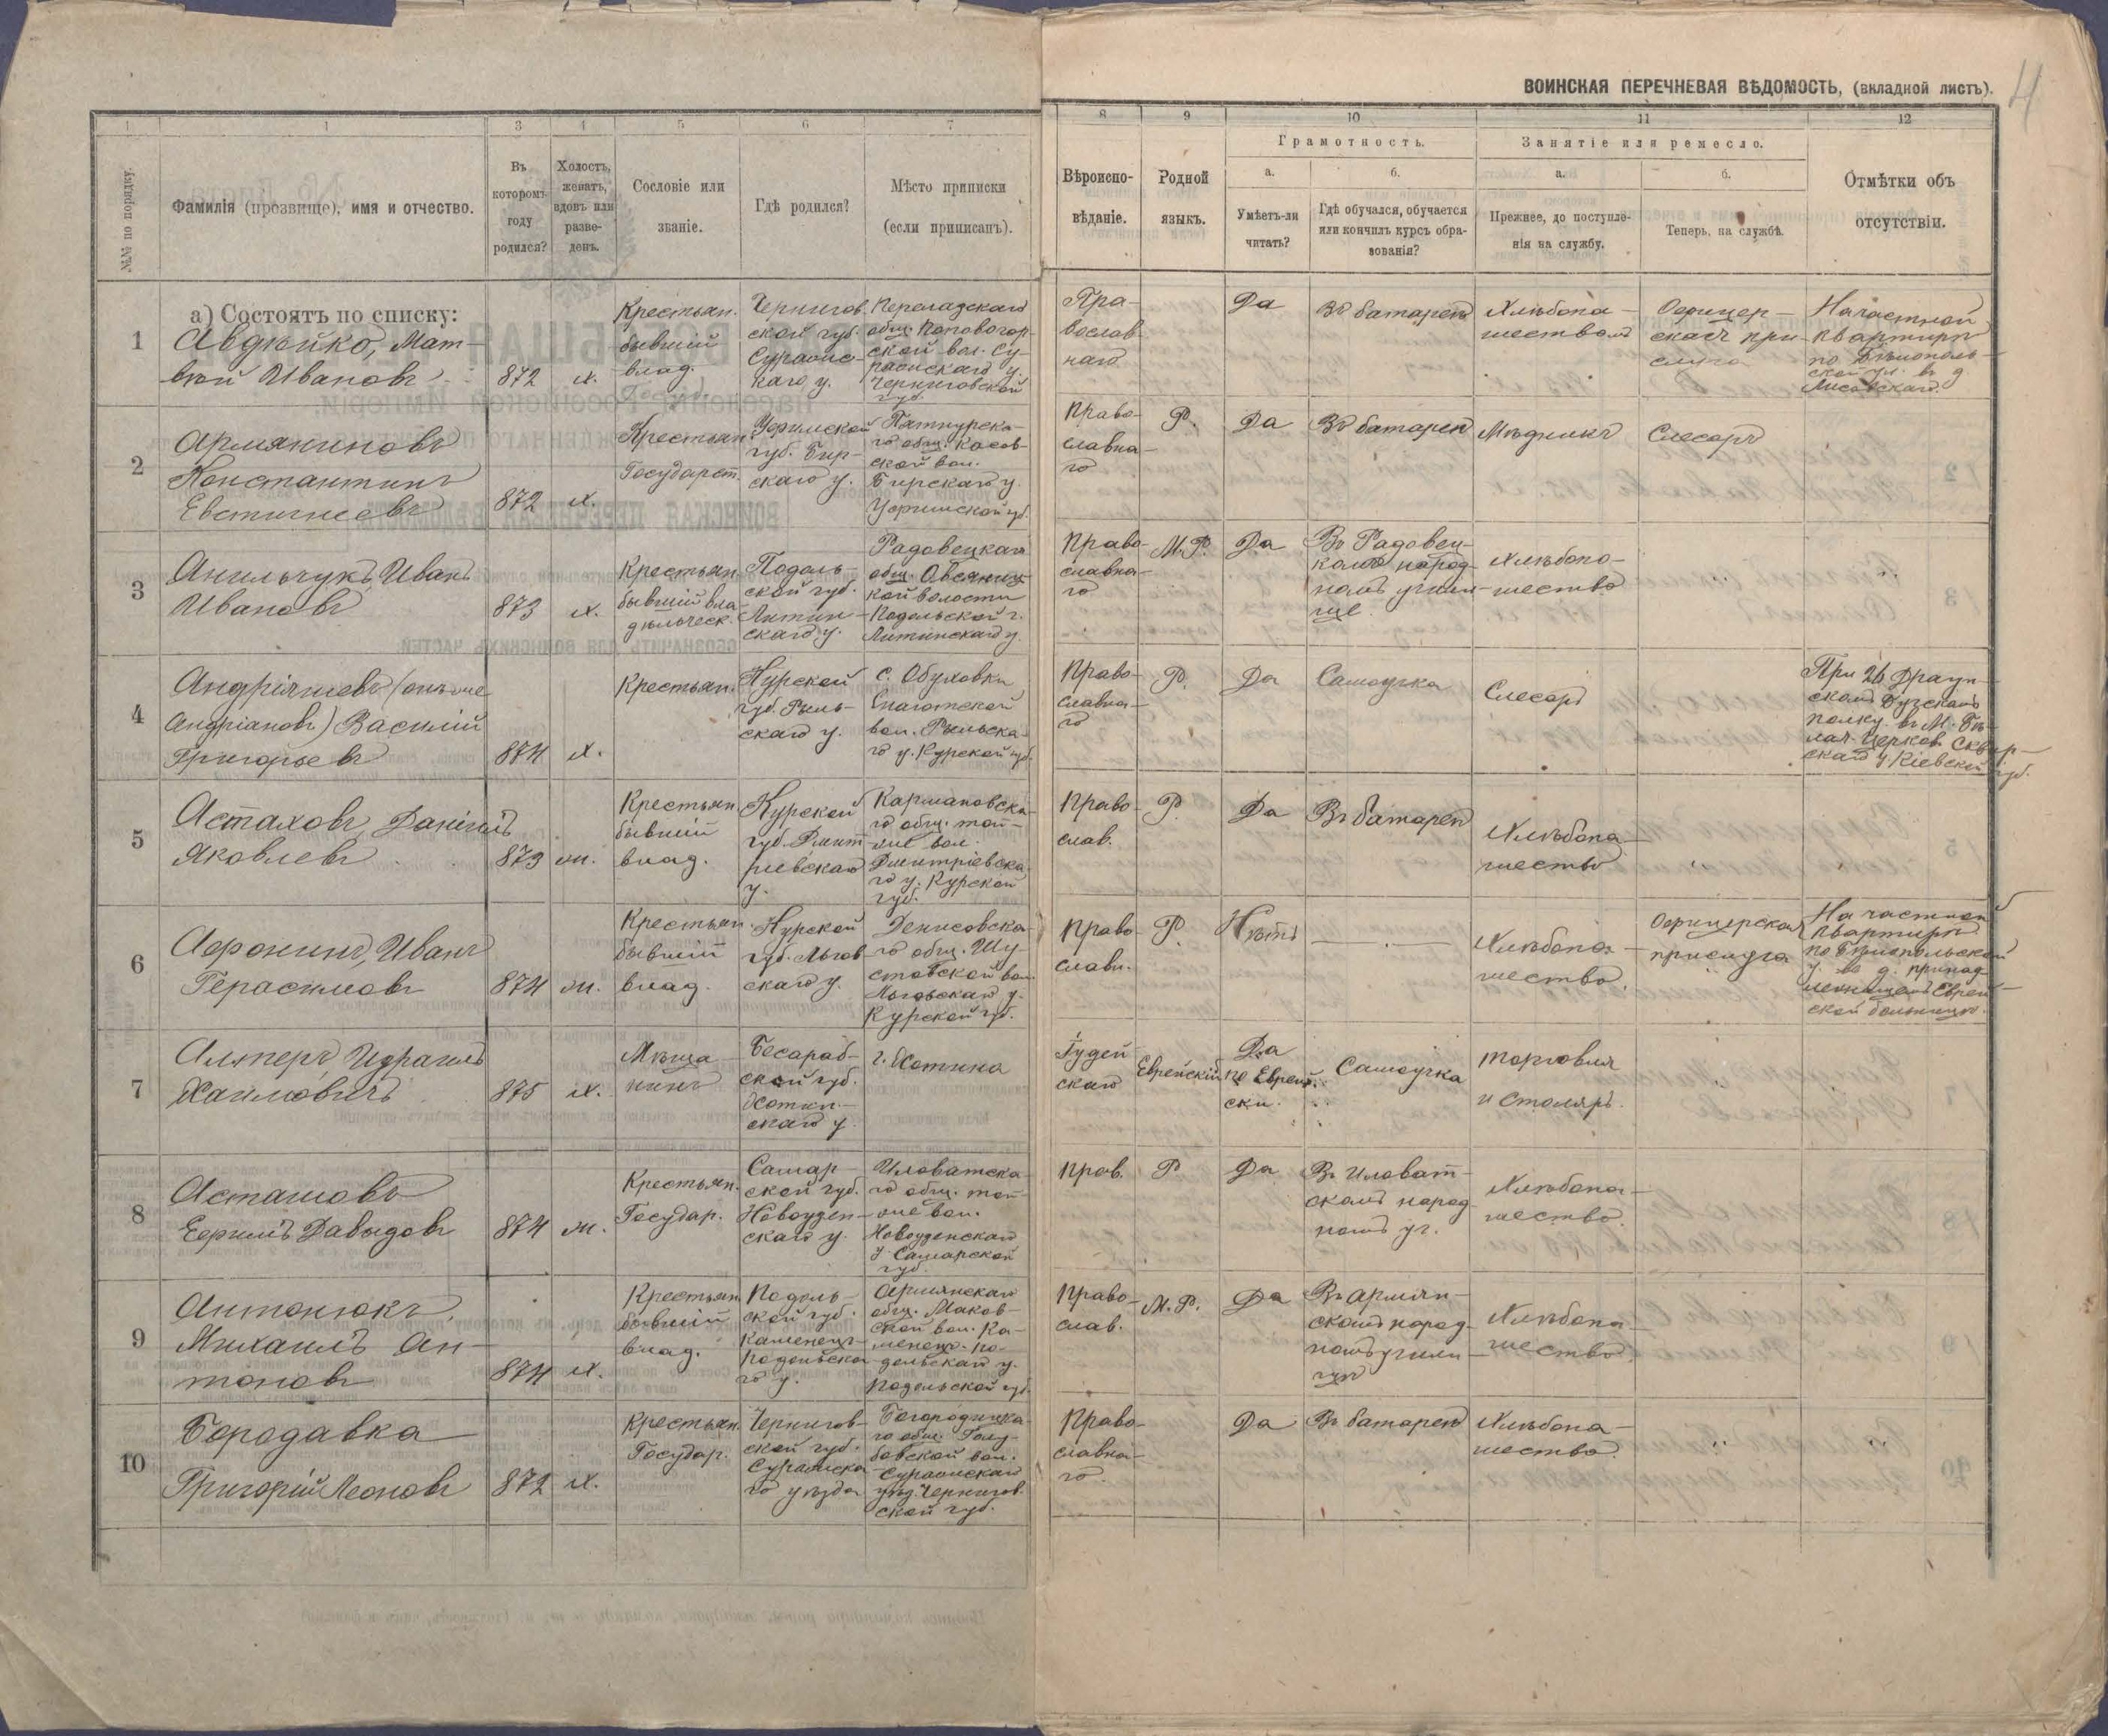 ВОИНСКАЯ ПЕРЕЧНЕВАЯ ВѢДОМОСТЬ, (вкладной листъ).
4
1 1 3 4 5 6 7 8 9 10 11 12
№№ по порядку.
Фамилія (прозвище), имя и отчество.
Въ которомъ году родился?
Холостъ, женатъ, вдовъ или разведенъ.
Сословіе или званіе.
Гдѣ родился?
Мѣсто приписки (если приписанъ).
Вѣроисповѣданіе.
Родной языкъ.
Грамотность.
а. Умѣетъ-ли читать?
б. Гдѣ обучался, обучается или кончилъ курсъ образованія?
Занятіе или ремесло.
а. Прежнее, до поступленія на службу.
б. Теперь, на службѣ.
Отмѣтки объ отсутствіи.
а) Состоятъ по списку:
1
Авдѣйко, Мат-
вѣй Ивановъ
872
х.
Крестьян.
бывшій
влад.
Чернигов
ской губ.
Суражс-
каго у.
общ. Поповогор-
ской вол. Су-
ражскаго у.
Черниговской
губ.
Пра-
вослав-
наго
Да
Въ батареи
Хлѣбопа-
шествомъ
Офицер-
скач при-
слуга
На частной
квартирѣ
по Бѣлополь-
ской ул. въ д.
Лисовскаго.
2
Армяниновъ
Константинъ
Евстигнеевъ
872
х.
Крестьян.
Государст.
Уфимской
губ. Бир-
скаго у.
го общ. Касев-
ской вол.
Бирскаго у.
Уфимской губ.
Право-
славна-
го
Р.
Да
Въ батареи
Мѣдникъ
Слесарь
3
Анильчукъ, Иванъ
Ивановъ
873
х.
Крестьян.
бывшій вла-
дѣльческ.
Подоль-
ской губ.
Литин-
скаго у.
Радовецкаго
общ.
кой волости
Подольской г.
Литинскаго у.
Право-
славна-
го
М.Р.
Да
Въ Радовец-
комъ народ-
номъ учили-
ще.
Хлѣбопа-
шество
4
Андріяшевъ (онъ же
Андріановъ) Василій
Григорьевъ
874
х.
Крестьян.
Курской
губ. Рыль-
скаго у.
с. Обуховки
вол. Рыльска-
го у. Курской губ.
Право-
славна-
го
Р.
Да
Самоучка
Слесарь
При 26 Драгун-
скомъ Бузскомъ
полку въ М. Бѣ-
лая-Церковь Сквир-
скаго у. Кіевской губ.
5
Астаховъ, Даніилъ
Яковлевъ
873
ж.
Крестьян.
бывшій
влад.
Курской
губ. Дмит-
ріевскаго
у.
Кармановска-
го общ. той-
же вол.
Дмитріевска-
го у. Курской
губ.
Право-
слав.
Р.
Да
Въ батареи
Хлѣбопа-
шество
6
Афонинъ, Иванъ
Герасимовъ
874
ж.
Крестьян.
бывшій
влад.
Курской
губ. Льгов-
скаго у.
Денисовска-
го общ. Шу-
стовской вол.
Льговскаго у.
Курской губ.
Право-
славн.
Р.
Нѣтъ
— . —
Хлѣбопа-
шество.
Офицерская
прислуга
На частной
квартирѣ
по Бѣлопольской
у. въ д. принад-
лежащемъ Еврей-
ской больницѣ.
7
Альперъ, Израиль
Хаимовичъ
875
х.
Мѣща-
нинъ
Бесараб-
ской губ.
Хотин-
скаго у.
г. Хотина
Іудей-
скаго
Еврейскій
Да
по Еврей-
ски.
Самоучка
Торговля
и столяръ.
8
Асташовъ
Ефримъ Давыдовъ
874
ж.
Крестьян.
Государ.
Самар-
ской губ.
Новоузен-
скаго у.
Иловатска-
го общ. той-
же вол.
Новоузенскаго
у. Самарской
губ.
Прав.
Р.
Да
Въ Иловат-
скомъ народ-
номъ уч.
Хлѣбопа-
шество.
9
Антонюкъ,
Михаилъ Ан-
тоновъ
874
х.
Крестьян.
бывшій
влад.
Подоль-
ской губ.
Каменецъ-
Подольска-
го у.
Армянскаго
общ. Маков-
ской вол. Ка-
менецъ-По-
дольскаго у.
Подольской губ.
Право-
слав.
М.Р.
Да
Въ Армян-
скомъ народ-
номъ учили-
щѣ
Хлѣбопа-
шество.
10
Бородавка
Григорій Леоновъ
872
х.
Крестьян.
Государ.
Чернигов-
ской губ.
Суражска-
го уѣзда
Богородицка-
го общ. Голу-
бовской вол.
Суражскаго
уѣзд. Чернигов-
ской губ.
Право-
славна-
го.
Да
Въ батареи
Хлѣбопа-
шество.